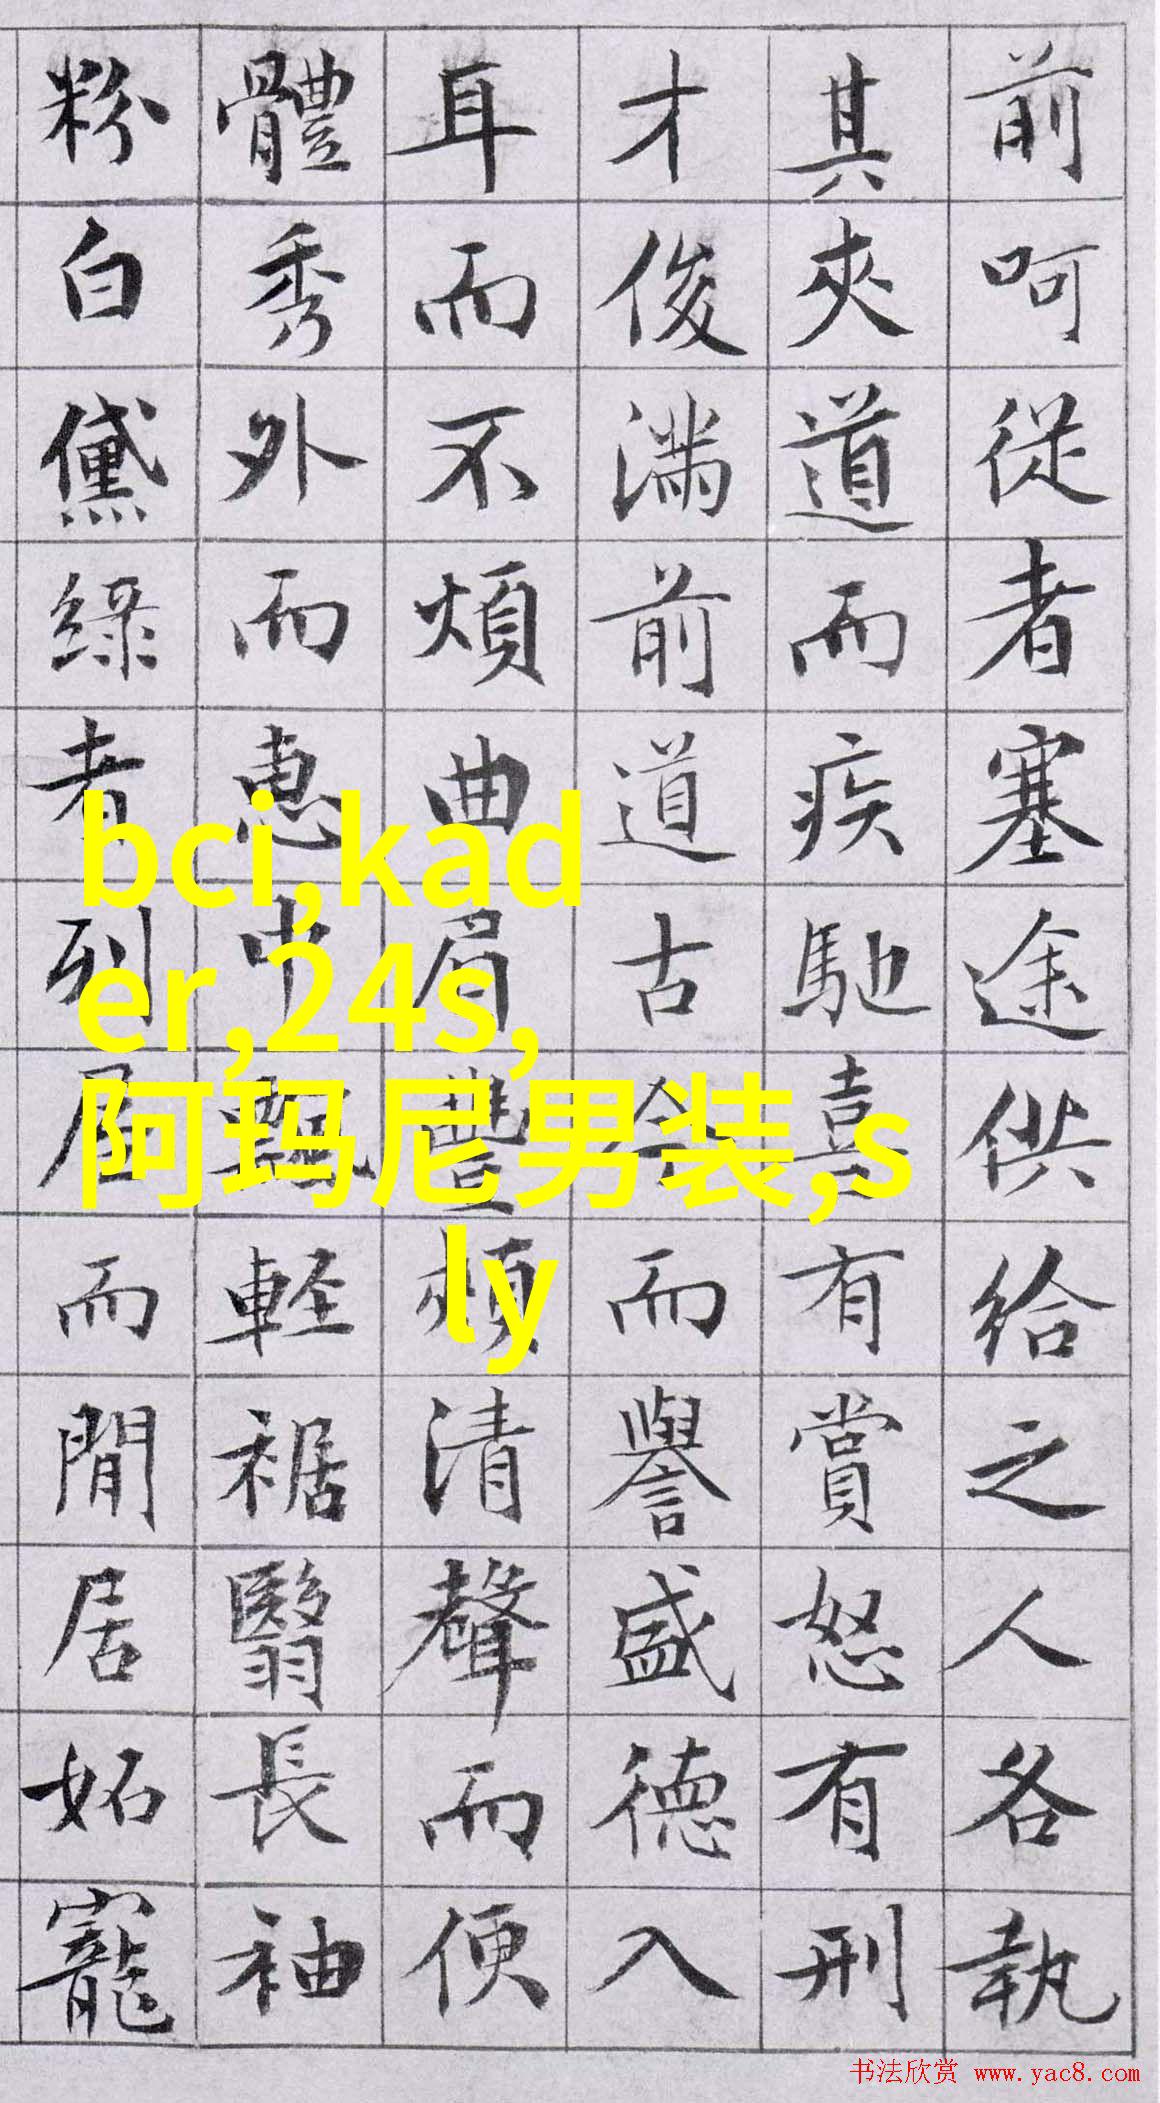 前呵從者塞途供給之人各執
其夾道而疾馳喜有賞怒有刑
才俊滿前道古今而譽盛徳入
耳而不煩曲眉豐頰清聲而便
體秀外而惠中飄軽裾翳長袖
粉白黛綠者列屋而閒居妬寵
bci,kad
er,24s,
阿玛尼男装,s
ly
书法欣赏 www.yac8.com